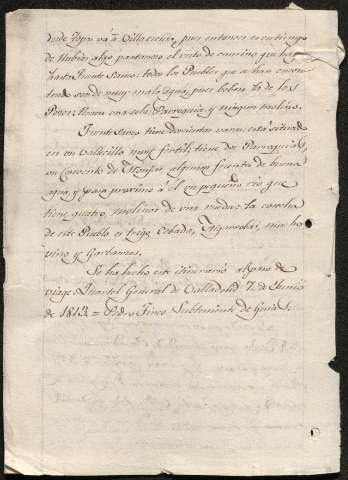 desde Yepes va á Villasequilla, pues entonces es en tiempo
de llubias algo pantanoso el resto de camino que hay
hasta Fuente Sauco todos los Pueblos que se han encon
trado son de muy mala agua, pues beben de los
Pozos, tienen una sola Parroquia y ningun molino.
Fuente Sauco tiene doscientos varas, está situado
en un Vallecillo muy fertil, tiene dos Parroquias,
un Convento de Monjas, algunas fuentes de buena
agua, y pasa proximo á él un pequeño rio que
tiene quatro molinos de una rueda: la cosecha
de este Pueblo es trigo, Cebada, Algarrobas, mucho
vino y Garbanzos.
Se ha hecho este itinerario á paso de
viage. Quartel General de Valladolid 7 de Junio
de 1813 = Pedro Subteniente de Guias.